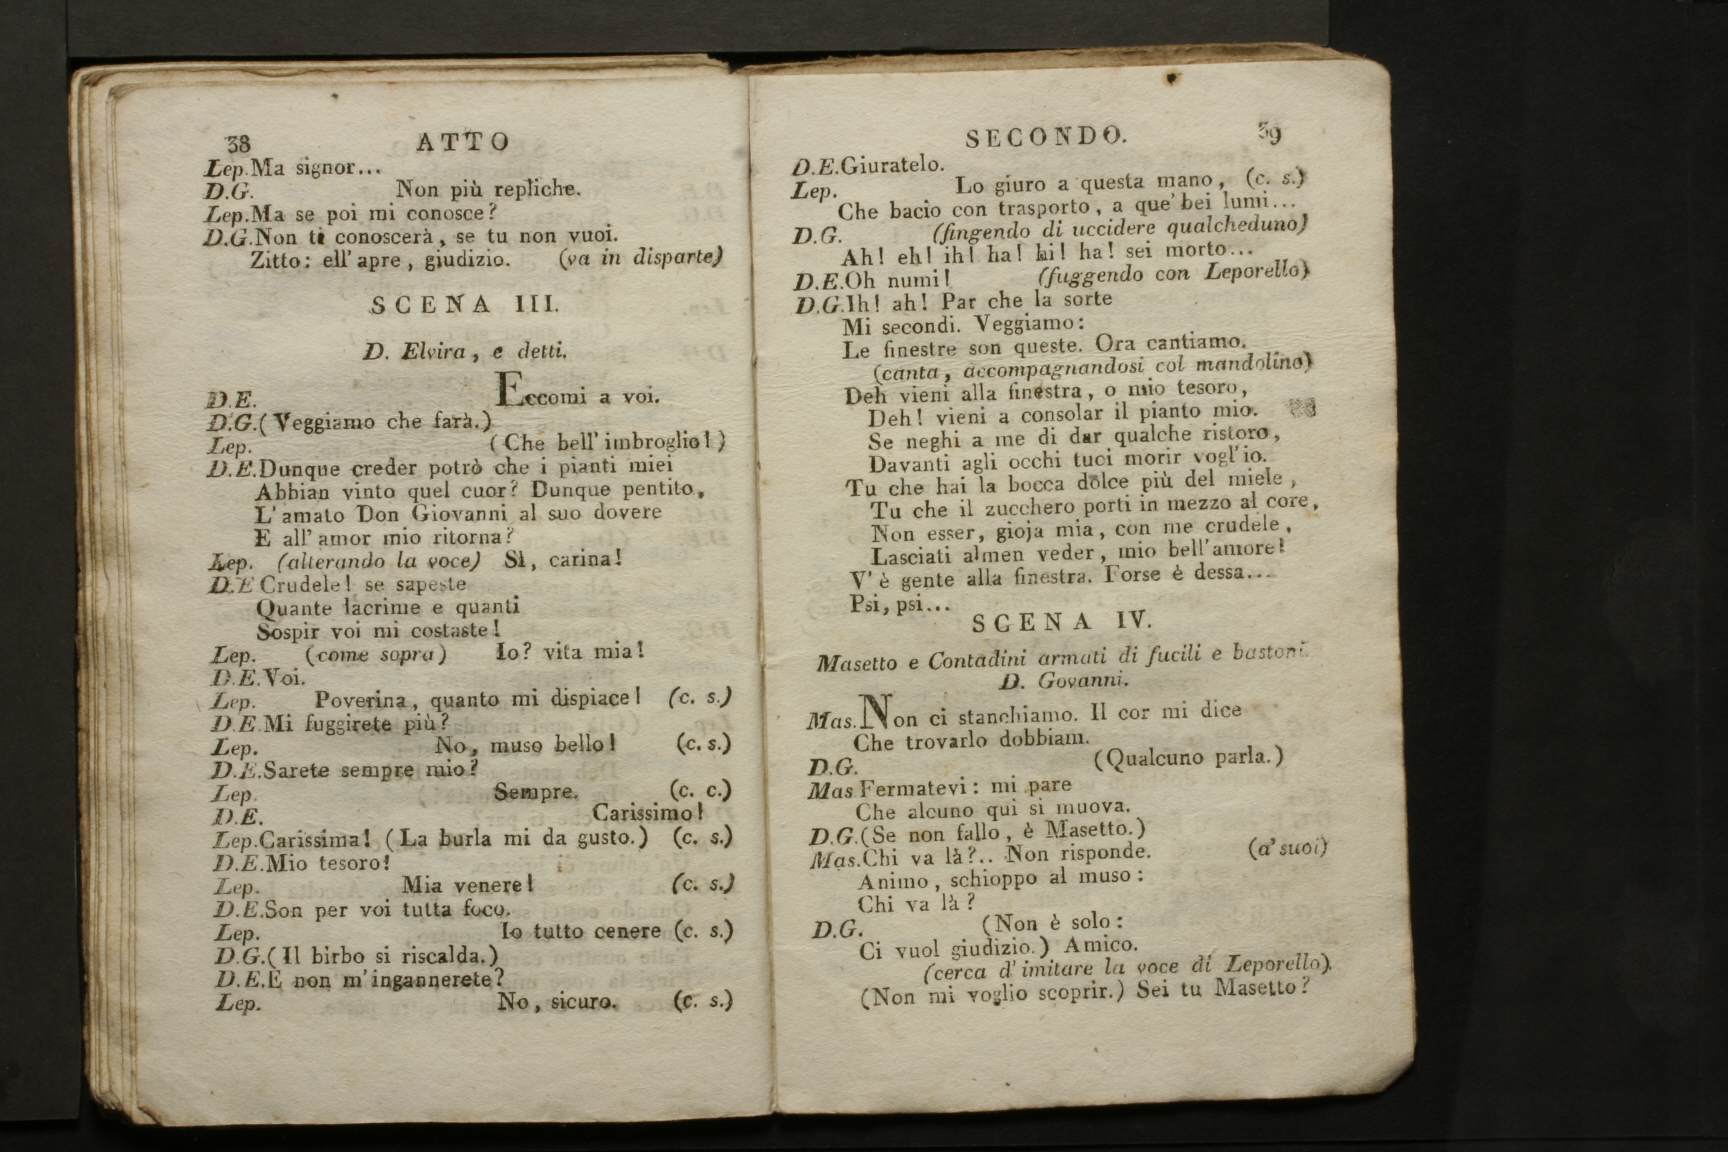 38 ATTO
Lep. Ma signor...
D.G. Non più repliche.
Lep. Ma se poi mi conosce?
D.G. Non ti conoscerà, se tu non vuoi.
Zitto: ell' apre, giudizio. (va in disparte)
SCENA III.
D. Elvira, e detti.
D.E. Eccomi a voi.
D.G. (Veggiamo che farà.)
Lep. (Che bell' imbroglio!)
D.E. Dunque creder potrò che i pianti miei
Abbian vinto quel cuor? Dunque pentito,
L' amato Don Giovanni al suo dovere
E all' amor mio ritorna?
Lep. (alterando la voce) Sì, carina!
D.E Crudele! se sapeste
Quante lacrime e quanti
Sospir voi mi costaste!
Lep. (come sopra) Io? vita mia!
D.E. Voi.
Lep. Poverina, quanto mi dispiace! (c. s.)
D.E. Mi fuggirete più?
Lep. No, muso bello! (c. s.)
D.E. Sarete sempre mio?
Lep. Sempre. (c. c.)
D.E. Carissimo!
Lep. Carissima! (La burla mi da gusto.) (c. s.)
D.E. Mio tesoro!
Lep. Mia venere! (c. s.)
D.E. Son per voi tutta foco.
Lep. Io tutto cenere (c. s.)
D.G. (Il birbo si riscalda.)
D.E. E non m' ingannerete?
Lep. No, sicuro. (c. s.)
SECONDO. 39
D.E. Giuratelo.
Lep. Lo giuro a questa mano, (c. s.)
Che bacio con trasporto, a que' bei lumi...
D.G. (fingendo di uccidere qualcheduno)
Ah! eh! ih! ha! hi! ha! sei morto...
D.E. Oh numi! (fuggendo con Leporello)
D.G. Ih! ah! Par che la sorte
Mi secondi. Veggiamo:
Le finestre son queste. Ora cantiamo.
(canta, accompagnandosi col mandolino)
Deh vieni alla finestra, o mio tesoro,
Deh! vieni a consolar il pianto mio.
Se neghi a me di dar qualche ristoro,
Davanti agli occhi tuoi morir vogl' io.
Tu che hai la bocca dolce più del miele,
Tu che il zucchero porti in mezzo al core,
Non esser, gioja mia, con me crudele,
Lasciati almen veder, mio bell' amore!
V' è gente alla finestra. Forse è dessa...
Psi, psi...
SCENA IV.
Masetto e Contadini armati di fucili e bastoni
D. Govanni.
Mas. Non ci stanchiamo. Il cor mi dice
Che trovarlo dobbiam.
D.G. (Qualcuno parla.)
Mas Fermatevi: mi pare
Che alcuno qui si muova.
D.G. (Se non fallo, è Masetto.)
Mas. Chi va là?.. Non risponde. (a' suoi)
Animo, schioppo al muso:
Chi va là?
D.G. (Non è solo:
Ci vuol giudizio.) Amico.
(cerca d' imitare la voce di Leporello).
(Non mi voglio scoprir.) Sei tu Masetto?